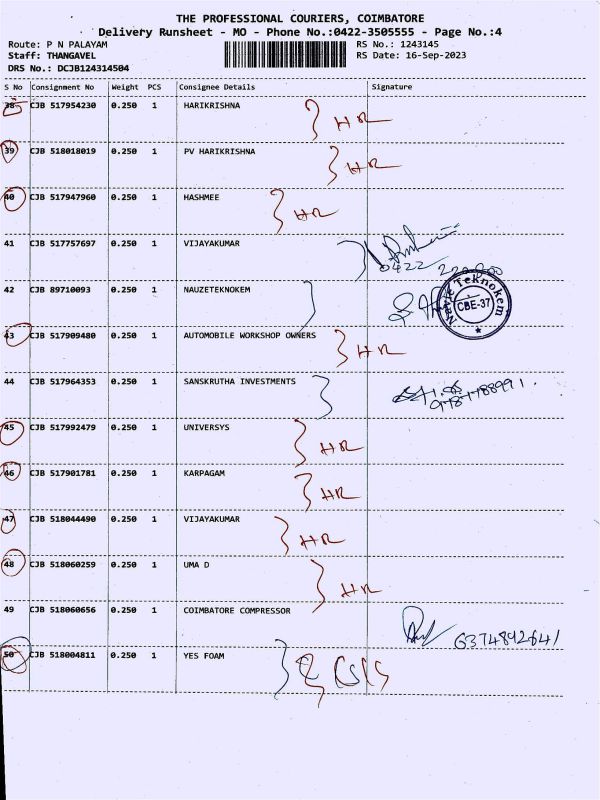 THE PROFESSIONAL COURIERS, COIMBATORE
Delivery Runsheet - MO - Phone No.:0422-3505555 - Page No.:4
Route: P N PALAYAM RS No.: 1243145
Staff: THANGAVEL RS Date: 16-Sep-2023
DRS No.: DCJB124314504
S No Consignment No Weight PCS Consignee Details Signature
38 CJB 517954230 0.250 1 HARIKRISHNA HR
39 CJB 518018019 0.250 1 PV HARIKRISHNA HR
40 CJB 517947960 0.250 1 HASHMEE HR
41 CJB 517757697 0.250 1 VIJAYAKUMAR
0422
42 CJB 89710093 0.250 1 NAUZETEKNOKEM
Teknokem
CBE-37
43 CJB 517909480 0.250 1 AUTOMOBILE WORKSHOP OWNERS HR
44 CJB 517964353 0.250 1 SANSKRUTHA INVESTMENTS
45 CJB 517992479 0.250 1 UNIVERSYS HR
46 CJB 517901781 0.250 1 KARPAGAM HR
47 CJB 518044490 0.250 1 VIJAYAKUMAR HR
48 CJB 518060259 0.250 1 UMA D HR
49 CJB 518060656 0.250 1 COIMBATORE COMPRESSOR
50 CJB 518004811 0.250 1 YES FOAM